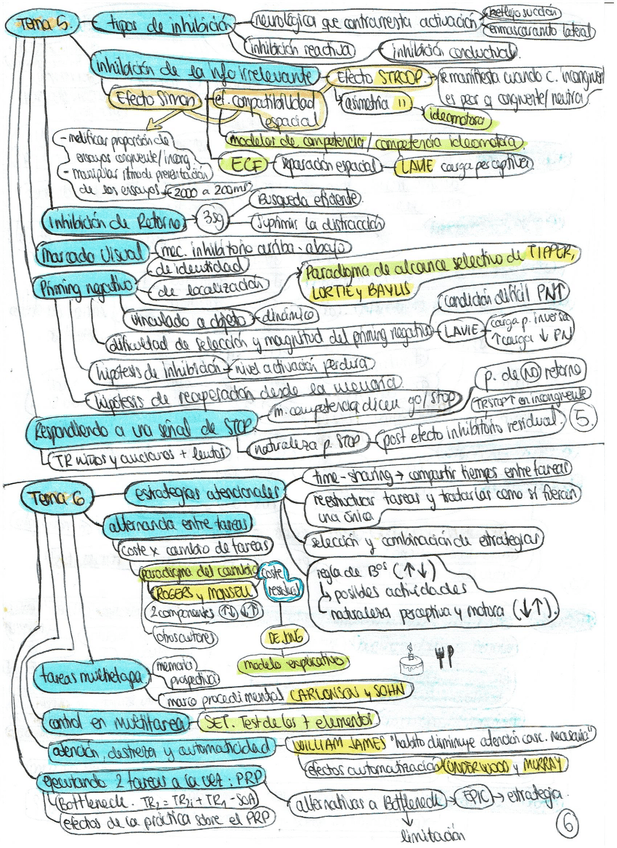 Tema 5
tipos de inhibición
neurológica que contrarresta activación
reflejo succión
enmascarando lateral
inhibición reactiva
inhibición conductual
inhibición de la info irrelevante
Efecto STROOP
se manifiesta cuando c. incongruente
es peor q congruente/neutra
asimetría
ideomotora
Efecto Simon
el. compatibilidad
espacial
modelos de competencia/competencia ideomotora
- modificar proporción de
ensayos congruente/incong
- manipular ritmo de presentación
de los ensayos
2000 a 200ms
ECF
Separación espacial
LAVIE carga perceptiva
Inhibición de Retorno
3sg
Búsqueda eficiente
suprimir la distracción
Marcado Visual
mec. inhibitorio arriba-abajo
Priming negativo
de identidad
de localización
Paradigma de alcance selectivo de TIPPER,
LORTIE y BAYLIS
vinculado a objeto
dinámico
dificultad de selección y magnitud del priming negativo
condición difícil PN↑
LAVIE
carga p. inversa
↑carga ↓ PN
hipótesis de inhibición
nivel activación perdura
hipótesis de recuperación desde la memoria
Respondiendo a una señal de STOP
m. competencia dicen go/STOP
p. de NO retorno
TRSTOP ↑ en incongruente
naturaleza p. STOP
post efecto inhibitorio residual.
TR niños y ancianos + lentos
5.
Tema 6
estrategias atencionales
time-sharing → compartir tiempos entre tareas
reestructurar tareas y tratarlas como si fueran
una única
selección y combinación de estrategias
regla de Bos (↑↓)
→ posibles actividades
→ naturaleza perceptiva y motora (↓↑).
alternancia entre tareas
coste x cambio de tareas
paradigma del cambio
ROGERS y MONSELL
coste
residual
2 componentes ↑↓ ↓↑
otros autores
DE JONG
modelo explicativo
tareas multietapa
memoria
prospectiva
marco procedimientos CARLONSON y SOHN
control en multitarea
SET. Test de los + elementos
atención, destreza y automaticidad
WILLIAM JAMES "hábito disminuye atención consc. necesaria"
efectos automatización UNDERWOOD y MURRAY
ejecutando 2 tareas a la vez: PRP
Bottleneck. TR2 = TR2i + TR1 - SOA
efectos de la práctica sobre el PRP
alternativas a Bottleneck
EPIC → estrategia.
limitación
6